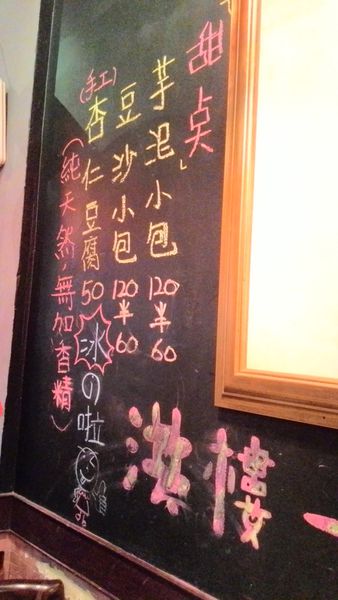 「甜点」
芋泥小包120半60
豆沙小包120半60
(手工)杏仁豆腐50冰の啦
(純天然,無加香精)
樓